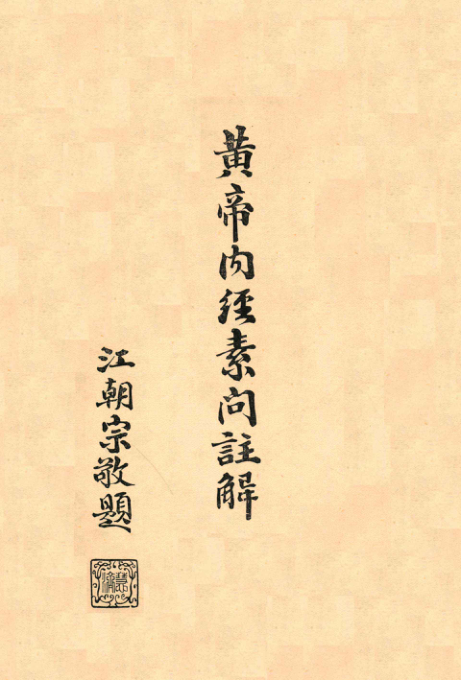 黃帝內經素問註解
江朝宗敬題